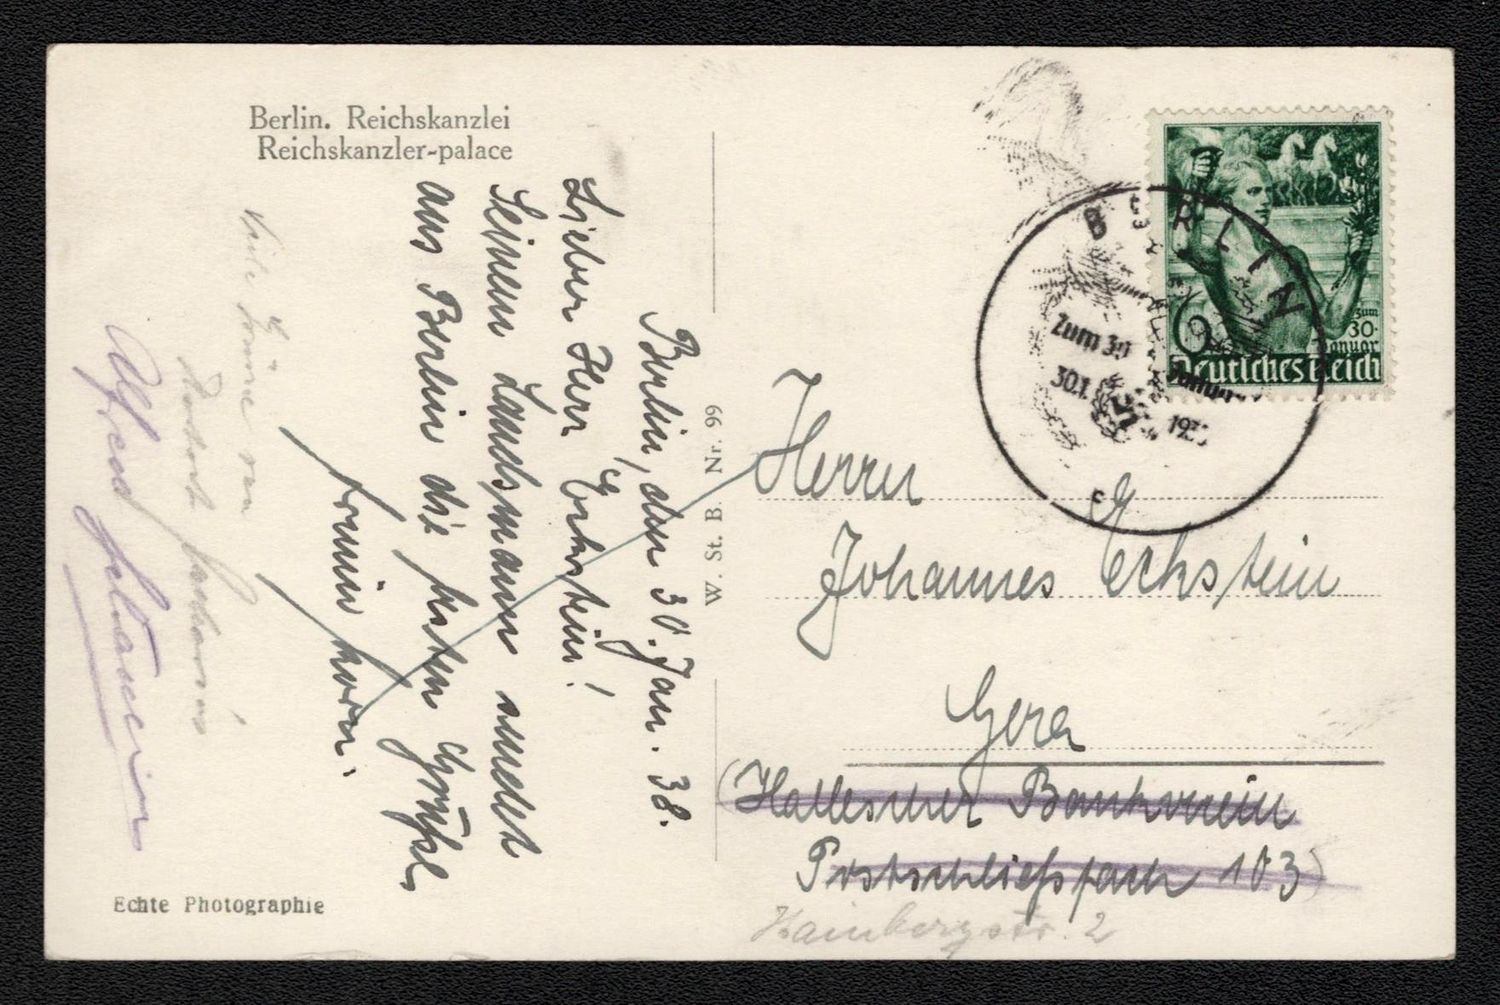 Berlin. Reichskanzlei
Reichskanzler-palace
Berlin, den 30. Jan. 38.
Lieber Herr Eckstein!
Seinem Landsmann sendet
aus Berlin die besten Grüße
Armin Korn.
Viele Grüße von
Alfred
Echte Photographie
W. St. B. Nr. 99
BERLIN
Zum 30.
30.1. 193
c
6
Zum
30.
Januar
Deutsches Reich
Herrn
Johannes Eckstein
Gera
(Hallescher Bankverein
Postschließfach 103)
Hainbergstr. 2